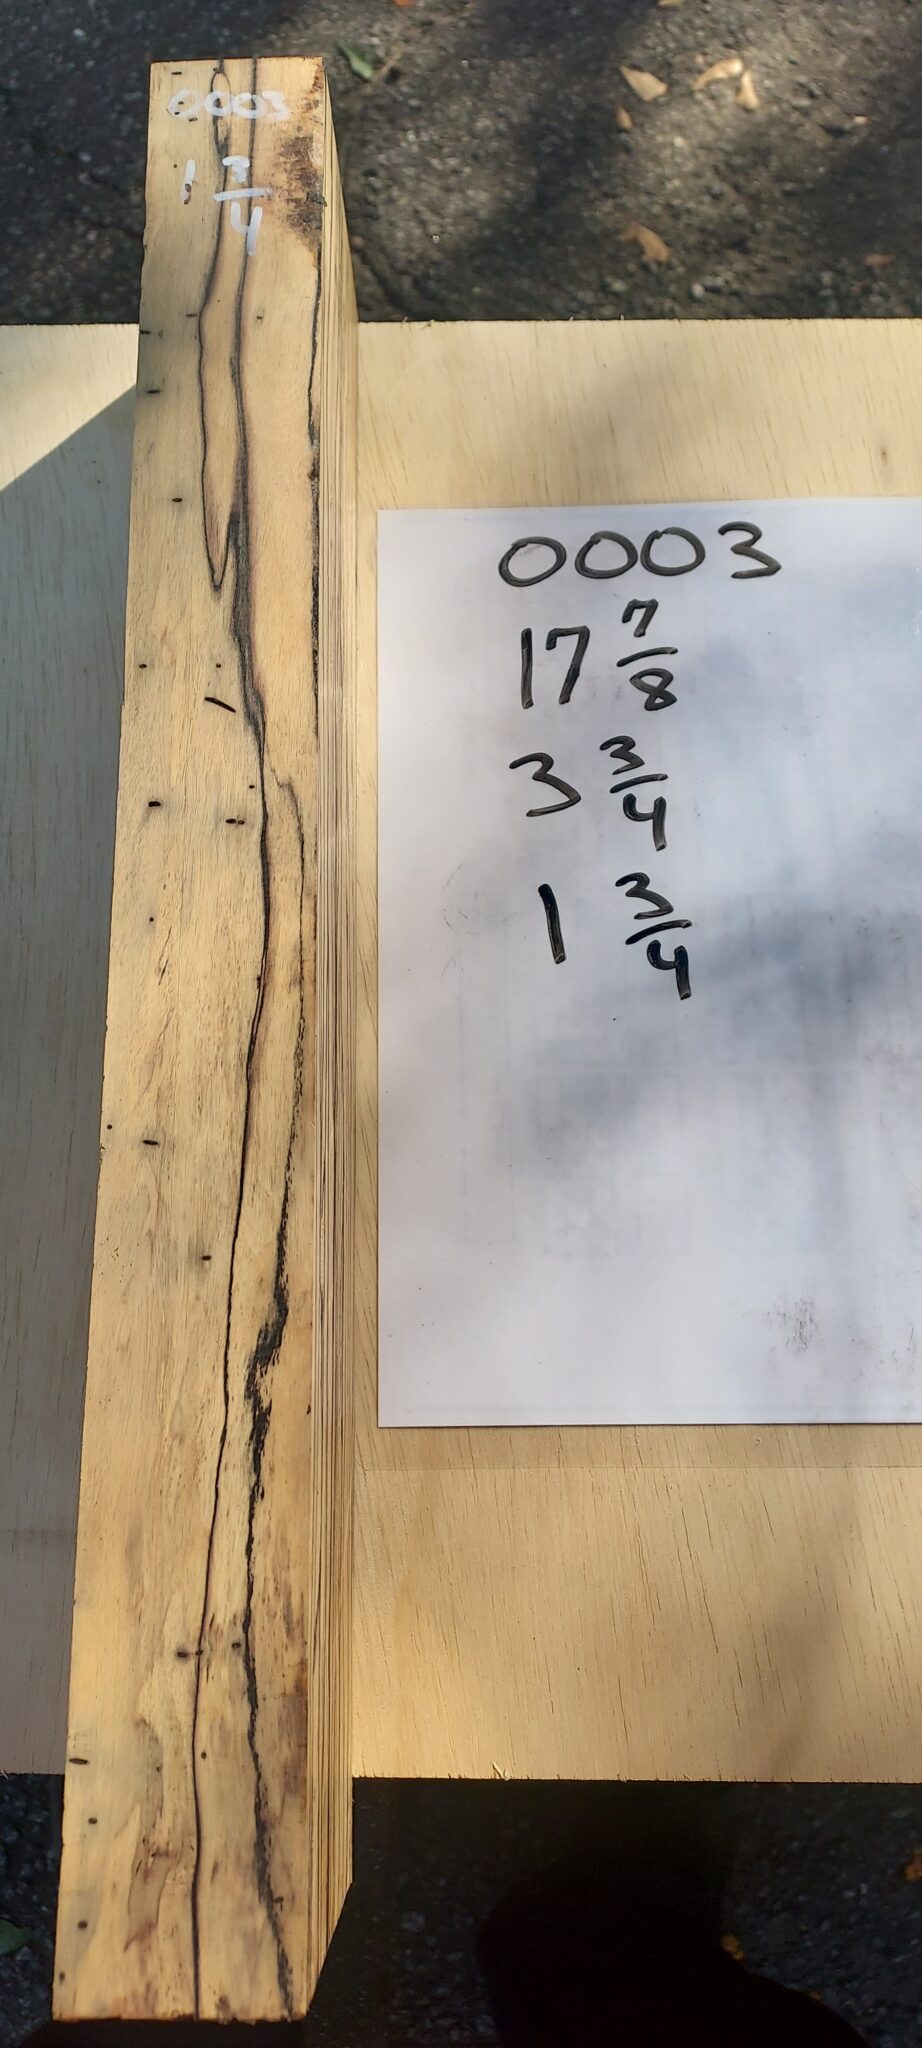 0003
1 3/4
0003
17 7/8
3 3/4
1 3/4